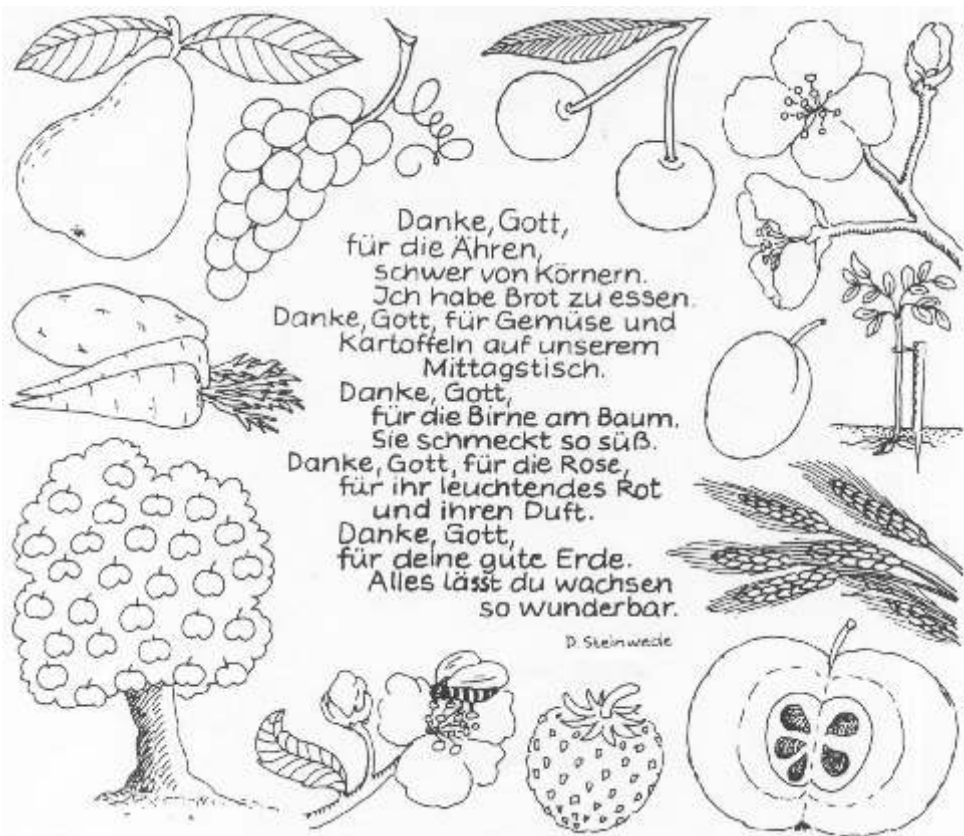 Danke, Gott,
für die Ähren,
schwer von Körnern.
Jch habe Brot zu essen.
Danke, Gott, für Gemüse und
Kartoffeln auf unserem
Mittagstisch.
Danke, Gott,
für die Birne am Baum.
Sie schmeckt so süß.
Danke, Gott, für die Rose,
für ihr leuchtendes Rot
und ihren Duft.
Danke, Gott,
für deine gute Erde.
Alles lässt du wachsen
so wunderbar.
D. Steinwede